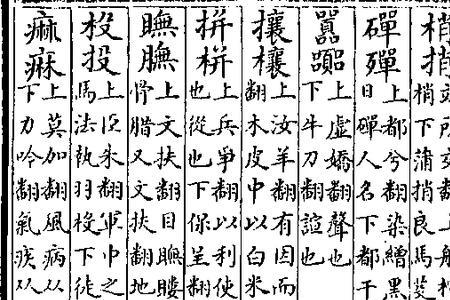 梢捎
梢下蒲捎良馬芰
磾殫
上都兮翻染繒黑
日磾人名下都干
嚻
上虛嬌翻聲也
下牛刀翻諠也
攘欀
上汝羊翻有因而
翻木皮中以白米
拼栟
上兵爭翻以利使
也從也下保呈翻
瞴膴
上文扶翻目瞴瞜
骨腊又文扶翻地
杸投
上臣朱翻軍中之
馬法執羽杸下徒
痲痳
上莫加翻風病从
下力吟翻氣疾从